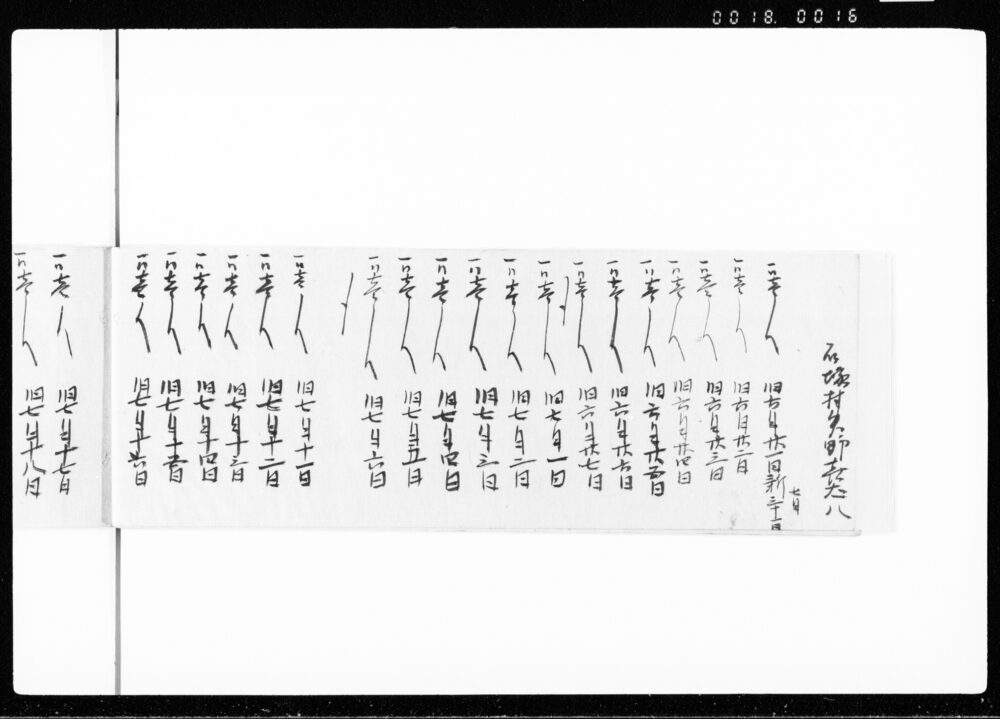 0018. 0016
石塚村矢野喜八
一日壱人 旧六月廿一日新七月三十一日
一日壱人 旧六月廿二日
一日壱人 旧六月廿三日
一日壱人 旧六月廿四日
一日壱人 旧六月廿五日
一日壱人 旧六月廿六日
一日壱人 旧六月廿七日
一日壱人 旧七月一日
一日壱人 旧七月二日
一日壱人 旧七月三日
一日壱人 旧七月四日
一日壱人 旧七月五日
一日壱人 旧七月六日
一日壱人 旧七月十一日
一日壱人 旧七月十二日
一日壱人 旧七月十三日
一日壱人 旧七月十四日
一日壱人 旧七月十五日
一日壱人 旧七月十六日
一日壱人 旧七月十七日
一日壱人 旧七月十八日